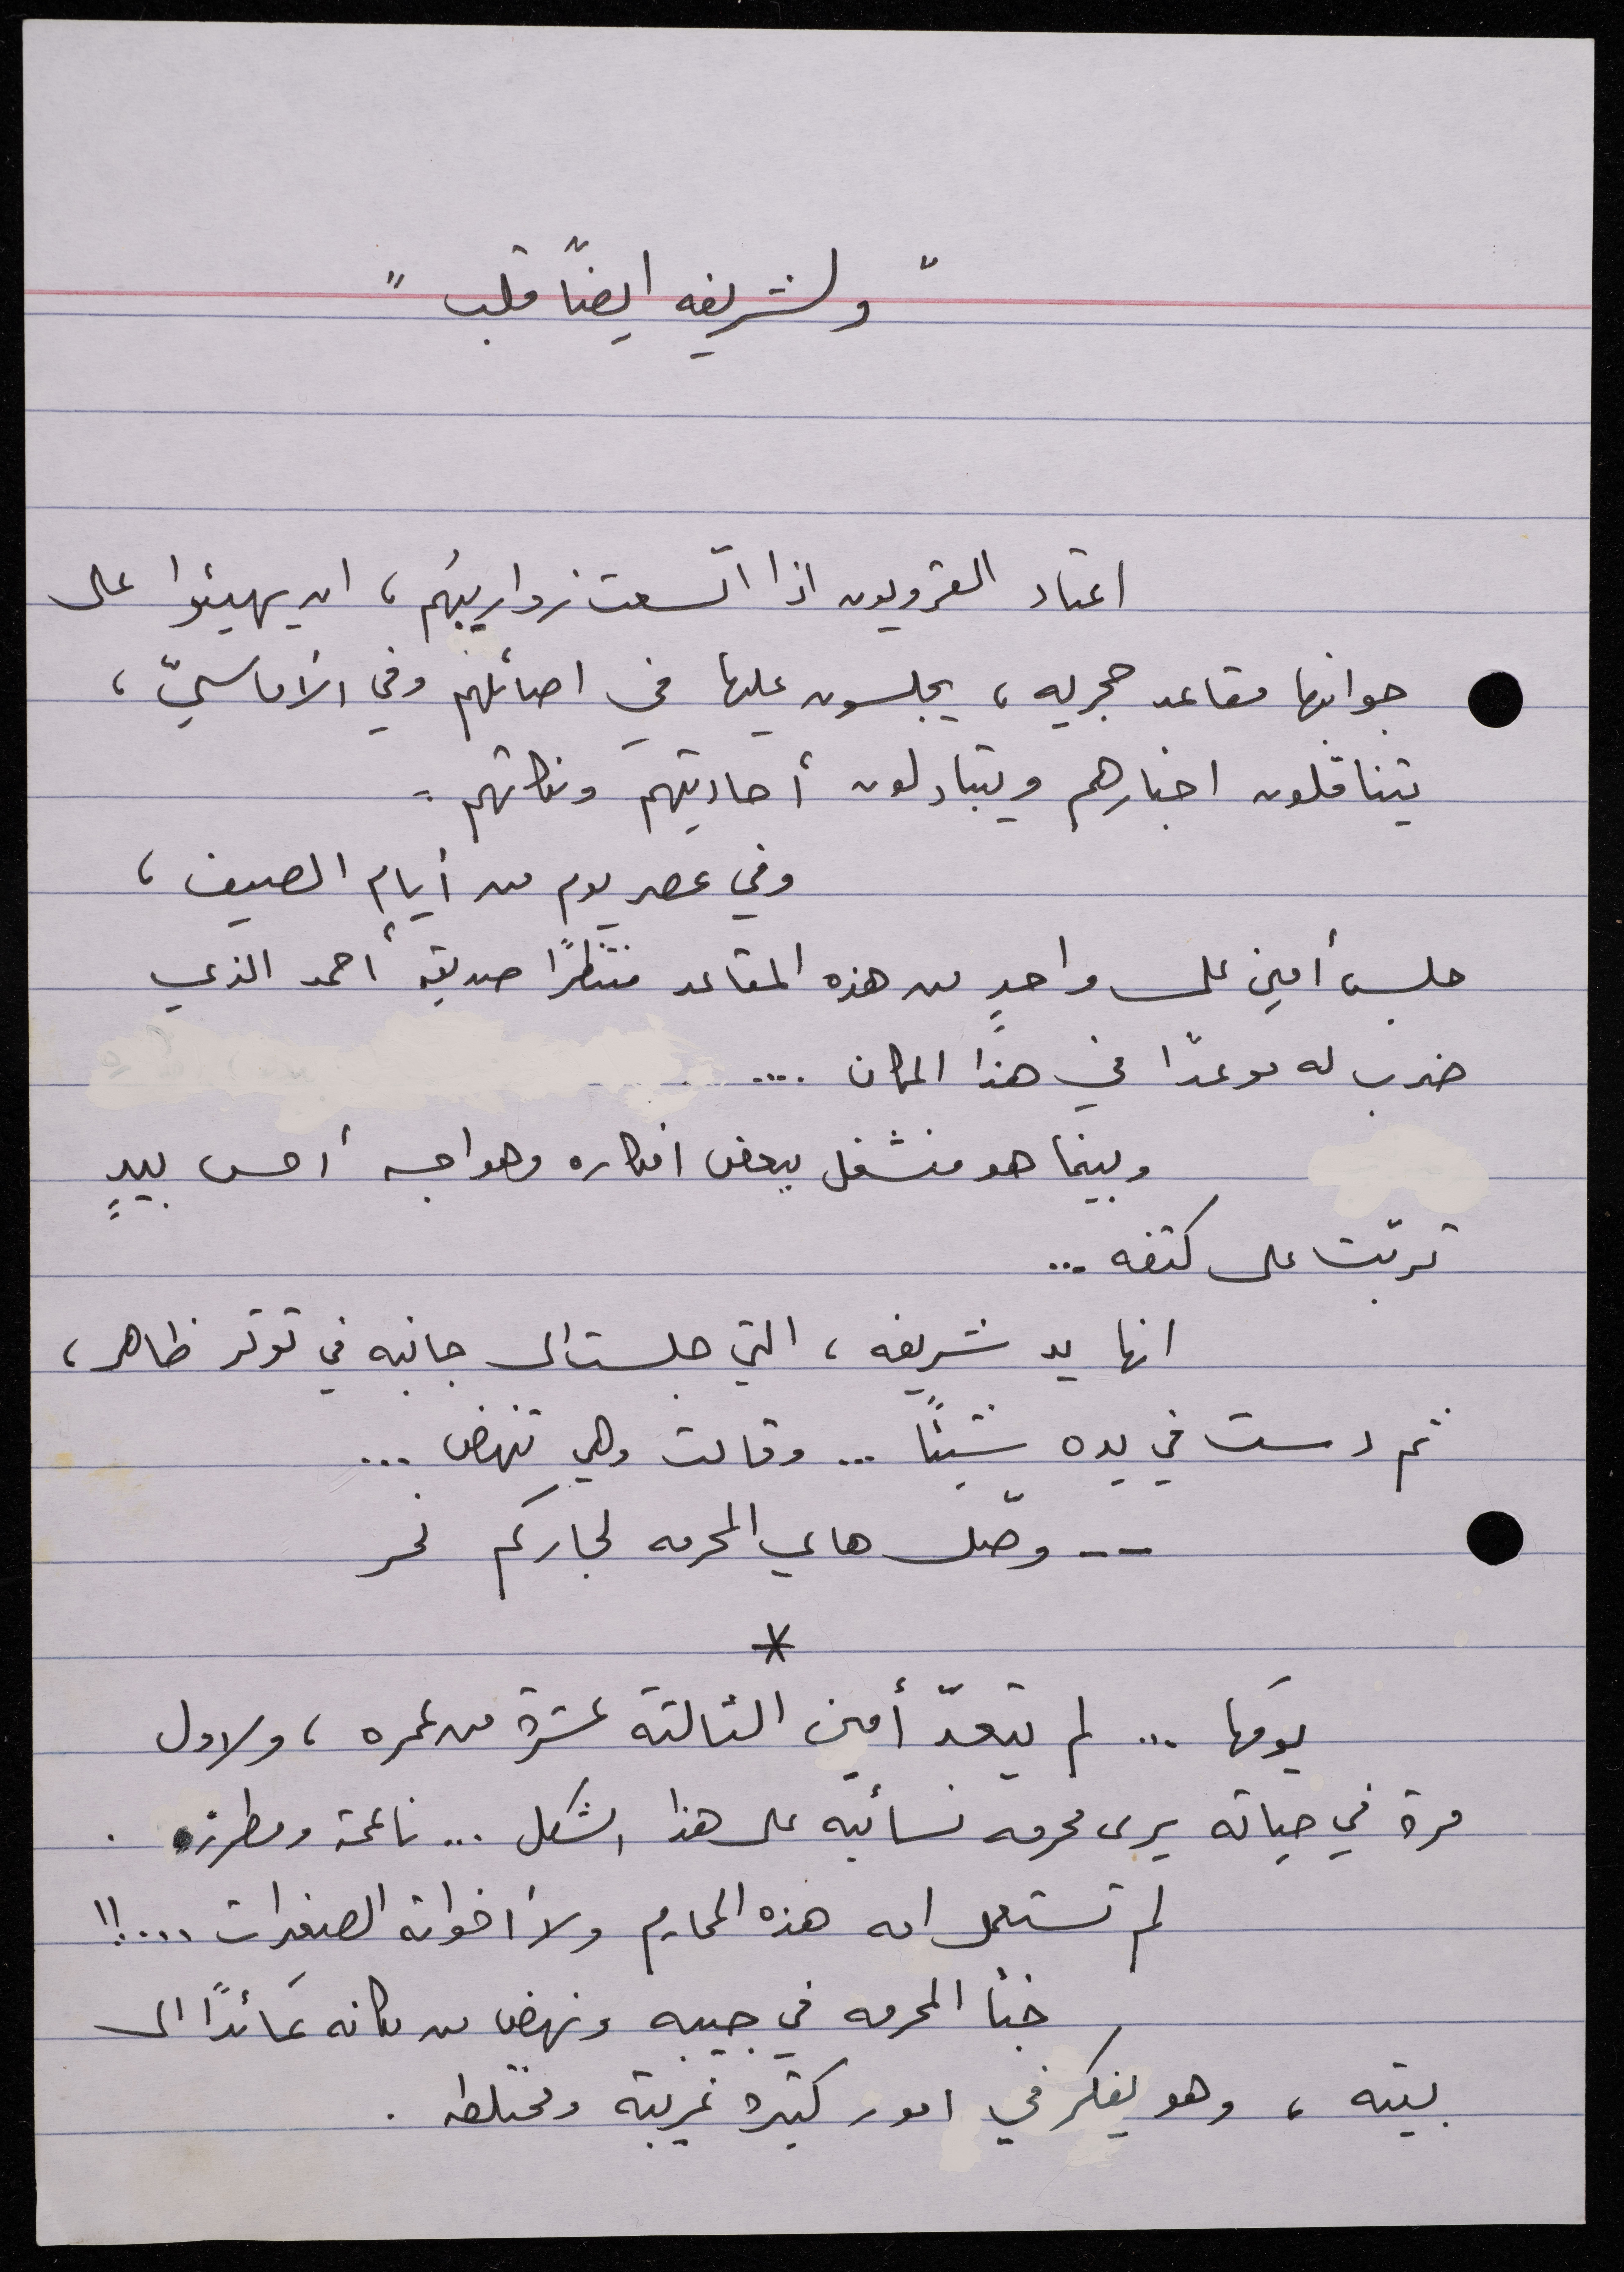 "ولشريفه ايضاً قلب"
اعتاد القرويون اذا اتّسعت زواريبهم، ان يهيئوا على
جوانبها مقاعد حجريه، يجلسون عليها في اصائلهم وفي الأماسيّ،
يتناقلون اخبارهم ويتبادلون أحاديثهم ونكاتهم.
وفي عصر يوم من أيام الصيف،
جلس أمين على واحدٍ من هذه المقاعد منتظرًا صديقه أحمد الذي
ضرب له موعدًا في هذا المكان ....
وبينما هو منشغل ببعض افكاره وهواجسه أحس بيدٍ
تربّت على كتفه ...
انها يد شريفه، التي جلست الى جانبه في توتر ظاهر،
ثم دست في يده شيئًا ... وقالت وهي تنهض ...
-- وصّل هاي المحرمه لجاركم نمر
*
يومَها ... لم يتعدّ أمين الثالثة عشرة من عمره، ولاول
مرة في حياته يرى محرمه نسائيه على هذا الشكل ... ناعمة ومطرزه.
لم تستعمل امه هذه المحارم ولا أخواته الصغيرات ...!!
خبّأ المحرمه في جيبه ونهض من مكانه عَائدًا الى
بيته، وهو يفكر في امور كثيرة غريبة ومختلطه.